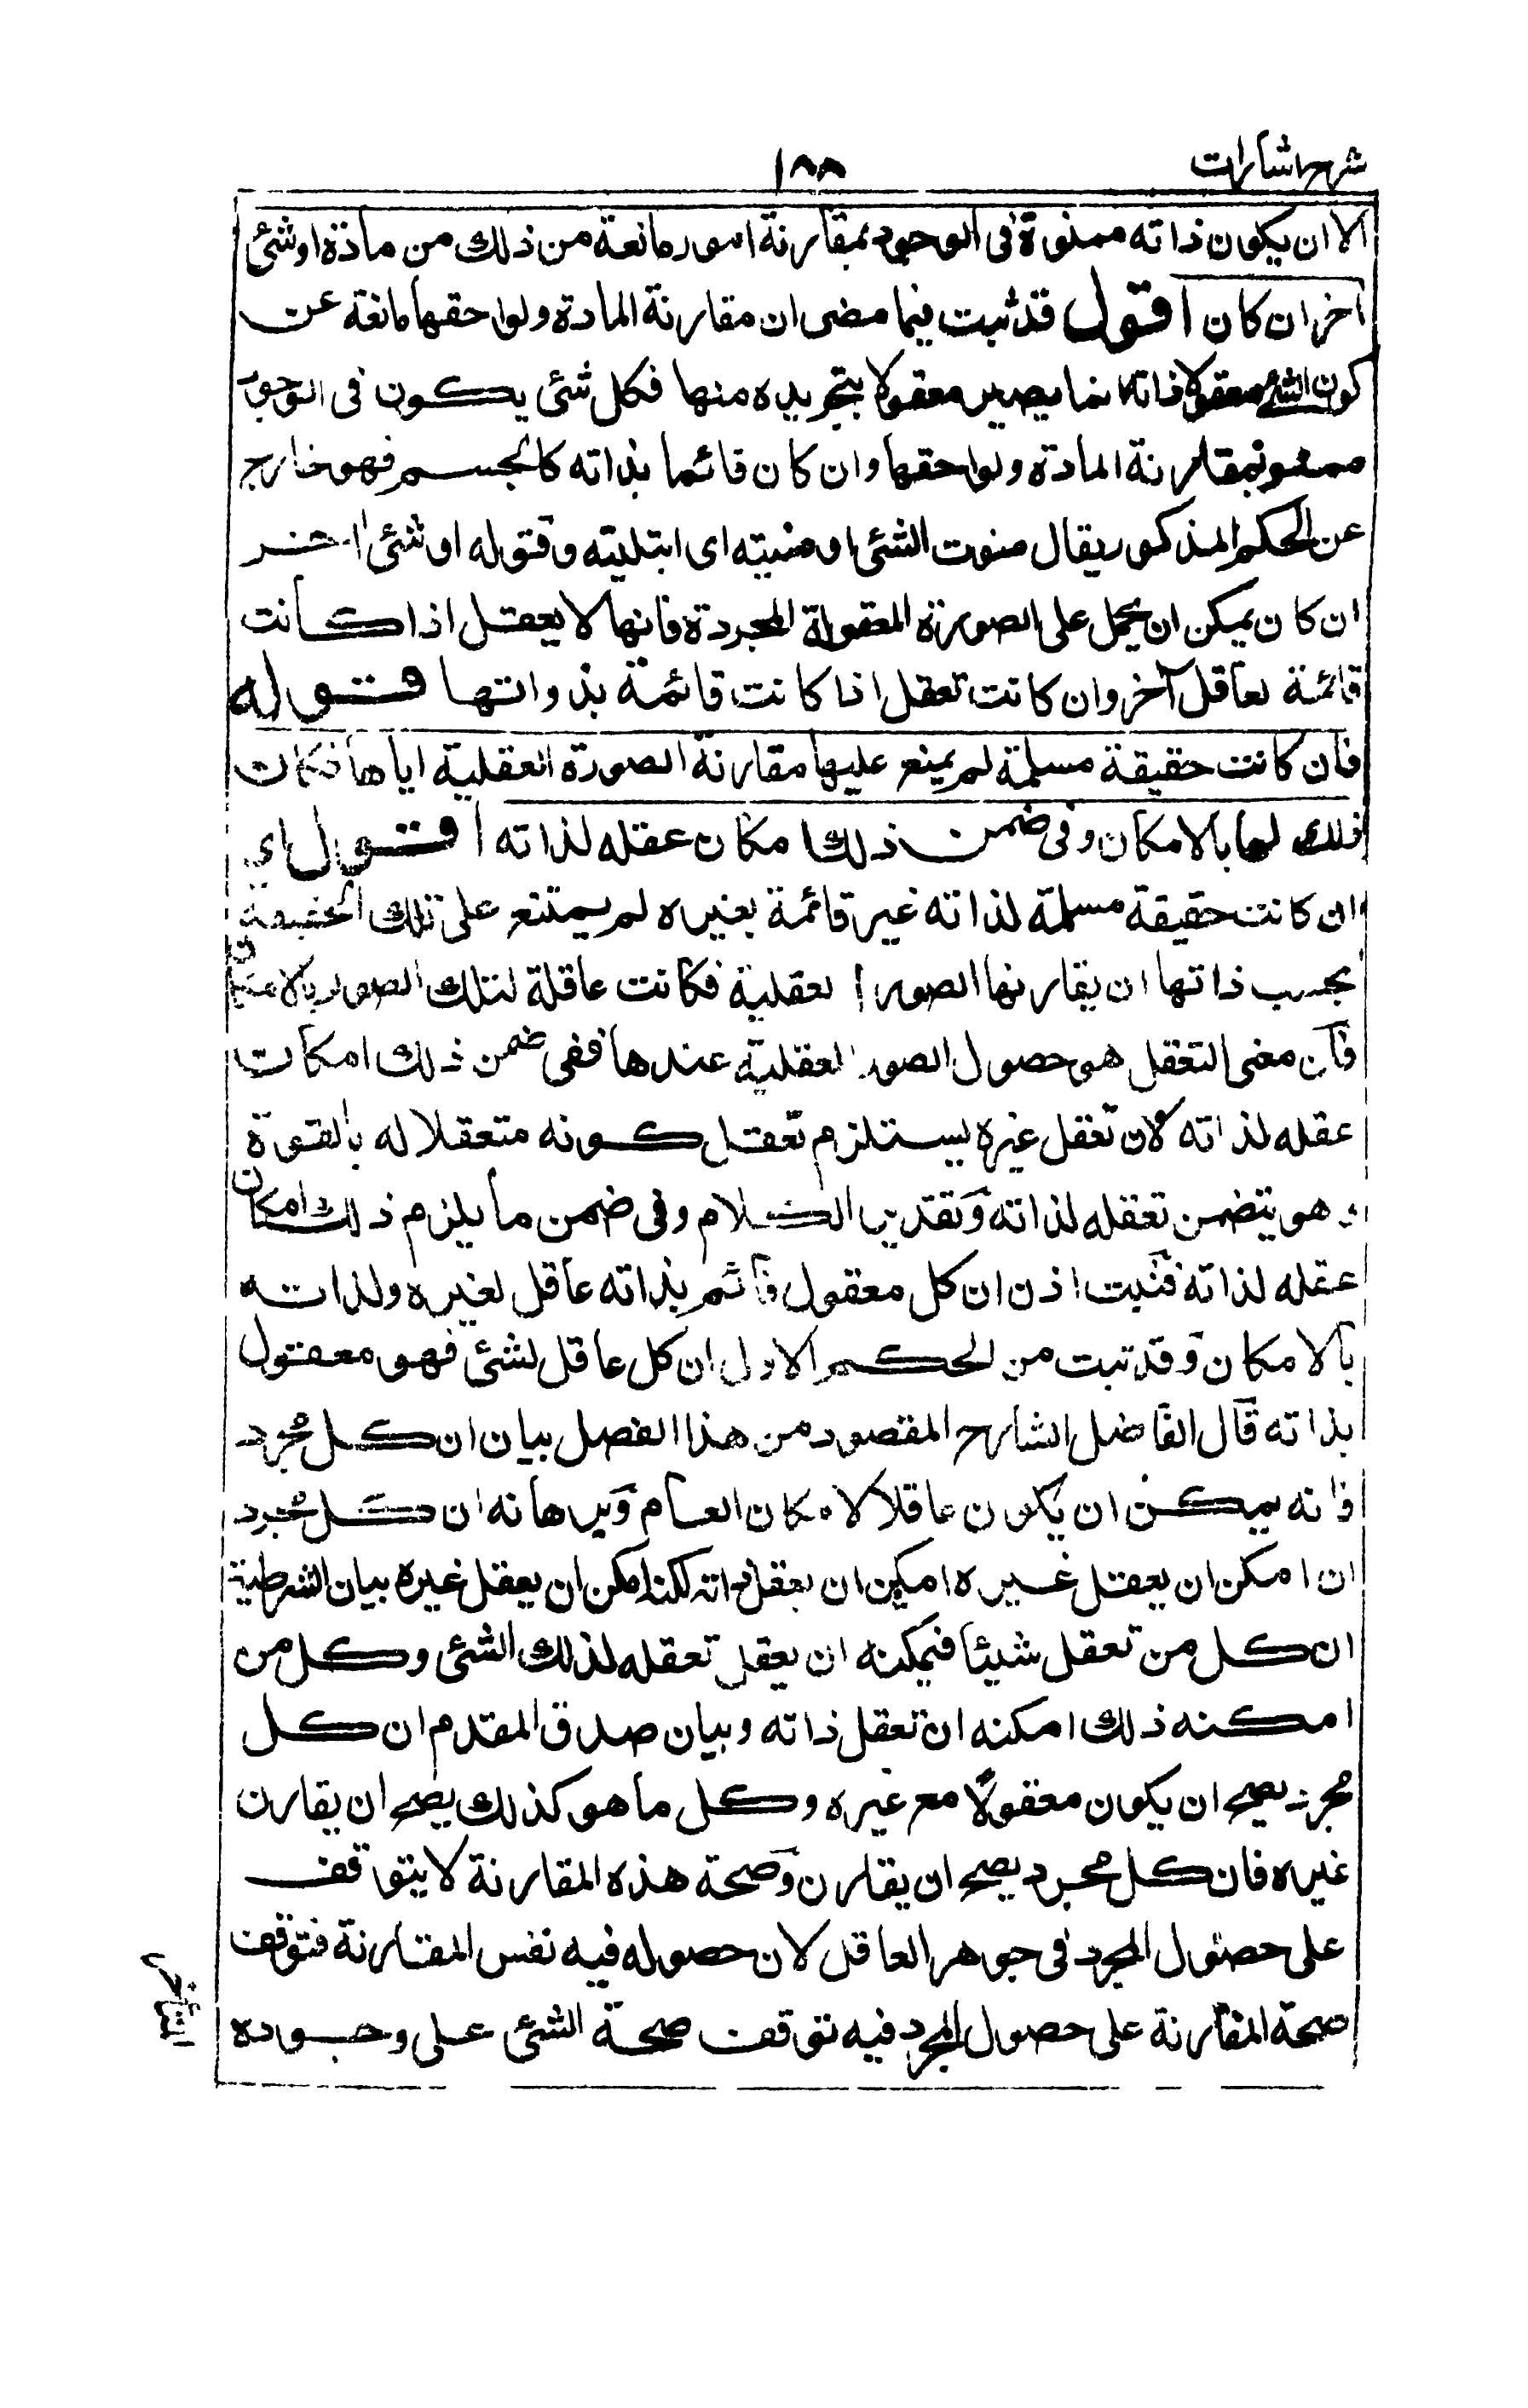 شرح اشارات
١٨٨
الا ان يكون ذاته ممنوة فى الوجود بمقارنة امور مانعة من ذلك من مادة او شئ
اخر ان كان اقول قد ثبت فيما مضى ان مقارنة المادة ولواحقها مانعة عن
كون الشئ معقولا فانه انما يصير معقولا بتجريده منها فكل شئ يكون فى الوجود
ممنو بمقارنة المادة ولواحقها وان كان قائما بذاته كالجسم فهو خارج
عن الحكم المذكور يقال منوت الشئ او منيته اى ابتليته وقوله او شئ اخر
ان كان يمكن ان يحمل على الصورة المعقولة المجردة فانها لا يعقل اذا كانت
قائمة لعاقل آخر وان كانت تعقل اذا كانت قائمة بذواتها قوله
فان كانت حقيقة مسلمة لم يمنع عليها مقارنة الصورة العقلية اياها فكان
ذلك لها بالامكان وفى ضمن ذلك امكان عقله لذاته اقول اى
وان كانت حقيقة مسلمة لذاته غير قائمة بغيره لم يمتنع على تلك الحقيقة
بحسب ذاتها ان يقارنها الصور العقلية فكانت عاقلة لتلك الصور بالامكان
فان معنى التعقل هو حصول الصور العقلية عندها ففى ضمن ذلك امكان
عقله لذاته لان تعقل غيره يستلزم تعقل كونه متعقلا له بالقوة
و هو يتضمن تعقله لذاته وتقدير الكلام وفى ضمن ما يلزم ذلك امكان
عقله لذاته فثبت اذن ان كل معقول قائم بذاته عاقل لغيره ولذاته
بالامكان وقد ثبت من الحكم الاول ان كل عاقل لشئ فهو معقول
بذاته قال الفاضل الشارح المقصود من هذا الفصل بيان ان كل مجرد
فانه يمكن ان يكون عاقلا بالامكان العام وبرهانه ان كل مجرد
ان امكن ان يعقل غيره امكن ان يعقل ذاته لكنه امكن ان يعقل غيره بيان الشرطية
ان كل من تعقل شيئا فيمكنه ان يعقل تعقله لذلك الشئ وكل من
امكنه ذلك امكنه ان تعقل ذاته وبيان صدق المقدم ان كل
مجرد يصح ان يكون معقولا مع غيره وكل ما هو كذلك يصح ان يقارن
غيره فان كل مجرد يصح ان يقارن وصحة هذه المقارنة لا يتوقف
على حصول المجرد فى جوهر العاقل لان حصوله فيه نفس المقارنة فتوقف
صحة المقارنة على حصول المجرد فيه توقف صحة الشئ على وجوده